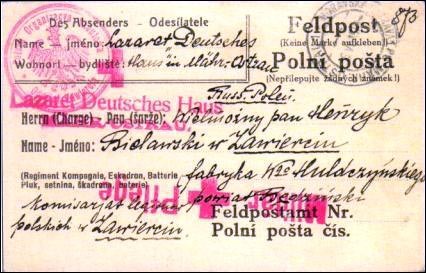 Des Absenders - Odesílatele
Name - jméno: Lazaret "Deutsches
Wohnort - bydliště: Haus" in Mähr-Ostrau
Feldpost
(Keine Marke aufkleben!)
Polní pošta
(Nepřilepujte žádných známek!)
873
Russ. Polen.
Lazaret Deutsches Haus
M. OSTRAU.
Herrn (Charge) - Pan (šarže): Wielmożny pan Henryk
Name - Jméno: Bielawski w Zawierciu
(Regiment Kompagnie, Eskadron, Batterie
Pluk, setnina, škadrona, baterie)
fabryka Hulczyńskiego
powiat Będziński
Komisarjat legionów
polskich w Zawierciu
Militär Pflege
Feldpostamt Nr.
Polní pošta čís.